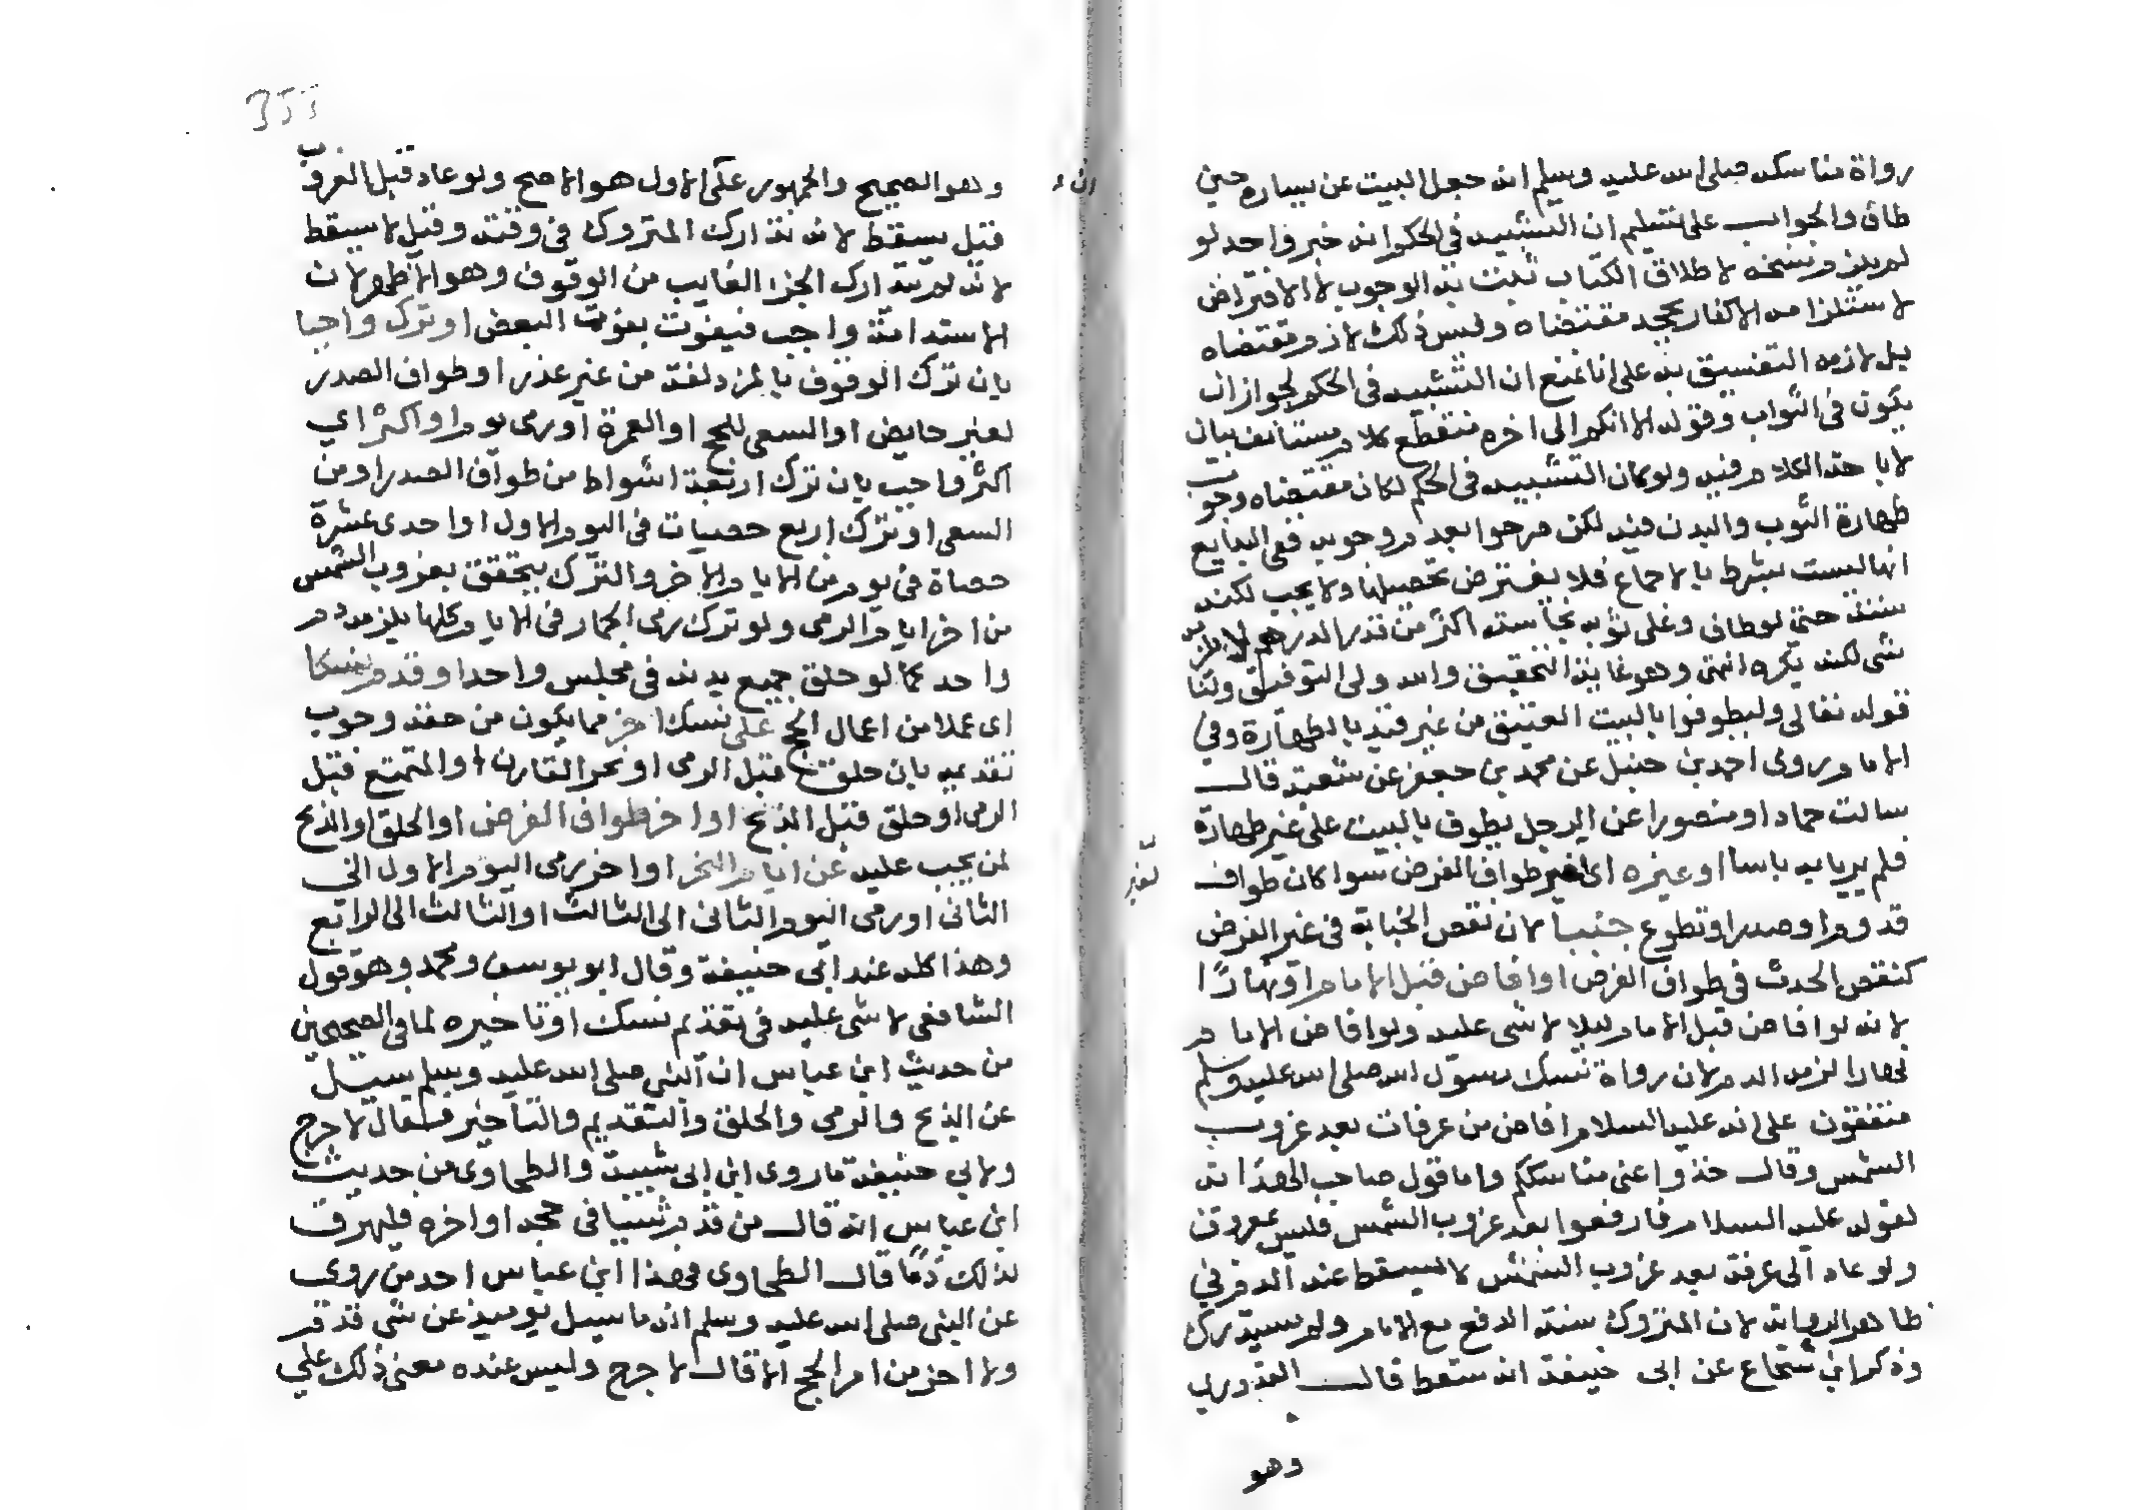 رواة مناسكه صلى الله عليه وسلم انه جعل البيت عن يساره حين
طاف والجواب على تسليم ان التشبيه في الحكم انه خبر واحد لو
لم يلزم نسخه لاطلاق الكتاب ثبت به الوجوب لا الافتراض
لاستلزامه الاكفار بجحد مقتضاه وليس ذلك لازم مقتضاه
بل لازمه التفسيق به على انا نمنع ان التشبيه في الحكم لجواز ان
يكون في الثواب وقوله الا انكم الى اخره منقطع كلام مستانف بيان
لاباحة الكلام فيه ولو كان التشبيه في الحكم لكان مقتضاه وجوب
طهارة الثوب والبدن فيه لكن صرحوا بعدم وجوبه ففي البدايع
انها ليست بشرط بالاجماع فلا يفترض تحصيلها ولا يجب لكنه
سنة حتى لو طاف وعلى ثوبه نجاسة اكثر من قدر الدرهم لا يلزمه
شى لكنه يكره انتهى وهو غاية التحقيق والله ولى التوفيق ولنا
قوله تعالى وليطوفوا بالبيت العتيق من غير قيد بالطهارة وفي
الامام روى احمد بن حنبل عن محمد بن جعفر عن شعبة قال
سالت حمادا ومنصورا عن الرجل يطوف بالبيت على غير طهارة
فلم يريا به باسا او غيره اى غير طواف الفرض سوا كان طواف
قدوم او صدر او تطوع جنبا لان نقص الجنابة في غير الفرض
كنقص الحدث في طواف الفرض او افاض قبل الامام نهارًا
لانه لو افاض قبل الامام ليلا لا شى عليه ولو افاض الامام
نهارا لزمه الدم لان رواة نسك رسول الله صلى الله عليه وسلم
متفقون على انه عليه السلام افاض من عرفات بعد غروب
الشمس وقال خذوا عنى مناسككم واما قول صاحب الهداية
لقوله عليه السلام فادفعوا بعد غروب الشمس فليس بمعروف
ولو عاد الى عرفة بعد غروب الشمس لا يسقط عنه الدم في
ظاهر الرواية لان المتروك سنة الدفع مع الامام ولم يستدرك
وذكر ابن شجاع عن ابى حنيفة انه سقط قال القدورى
وهو
وهو الصحيح والجمهور على الاول هو الاصح ولو عاد قبل الغروب
قيل يسقط لانه تدارك المتروك في وقته وقيل لا يسقط
لانه لم يتدارك الجزء الغايب من الوقوف وهو الاظهر لان
الاستدامة واجب فيفوت بفوت البعض او ترك واجبا
بان ترك الوقوف بالمزدلفة من غير عذر او طواف الصدر
لغير حايض او السعى للحج او العمرة او رمى يوم او اكثر اي
اكثر واجب بان ترك اربعة اشواط من طواف الصدر او من
السعى او ترك اربع حصيات في اليوم الاول او احدى عشرة
حصاة في يوم من الايام الاخر والترك يتحقق بغروب الشمس
من اخر ايام الرمى ولو ترك رمى الجمار في الايام كلها يلزمه دم
واحد كما لو حلق جميع بدنه في مجلس واحد او قدم نسكا
اى عملا من اعمال الحج على نسك اخر مما يكون من حقه وجوب
تقديمه بان حلق قبل الرمى او نحر القارن او المتمتع قبل
الرمى او حلق قبل الذبح او اخر طواف الفرض او الحلق او الذبح
لمن يجب عليه عن ايام النحر او اخر رمى اليوم الاول الى
الثانى او رمى اليوم الثانى الى الثالث او الثالث الى الرابع
وهذا كله عند ابى حنيفة وقال ابو يوسف ومحمد وهو قول
الشافعى لا شى عليه في تقديم نسك او تاخيره لما في الصحيحين
من حديث ابن عباس ان النبى صلى الله عليه وسلم سيل
عن الذبح والرمى والحلق والتقديم والتاخير فقال لا حرج
ولابي حنيفة ما روى ابن ابى شيبة والطحاوى من حديث
ابن عباس انه قال من قدم شيئا في حجه او اخره فليهرق
لذلك دمًا قال الطحاوى فهذا ابن عباس احد من روى
عن النبى صلى الله عليه وسلم انه ما سيل يوميذ عن شى قدم
ولا اخر من امر الحج الا قال لا حرج وليس عنده معنى ذلك على